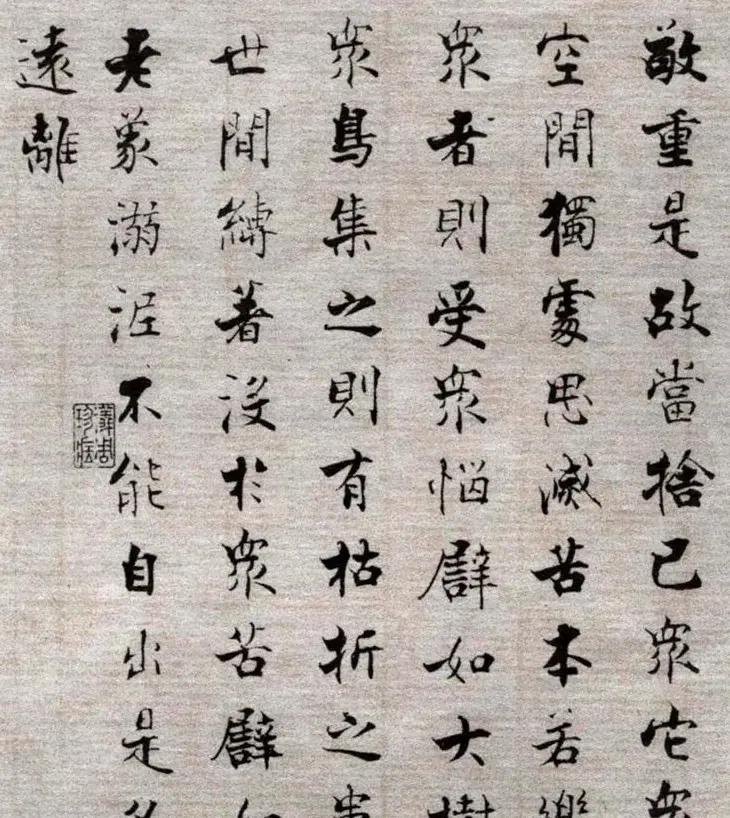 敬重是故當捨己衆它衆
空閒獨處思滅苦本若樂
衆者則受衆惱譬如大樹
衆鳥集之則有枯折之患
世間縛著没於衆苦譬如
老象溺泥不能自出是名
遠離